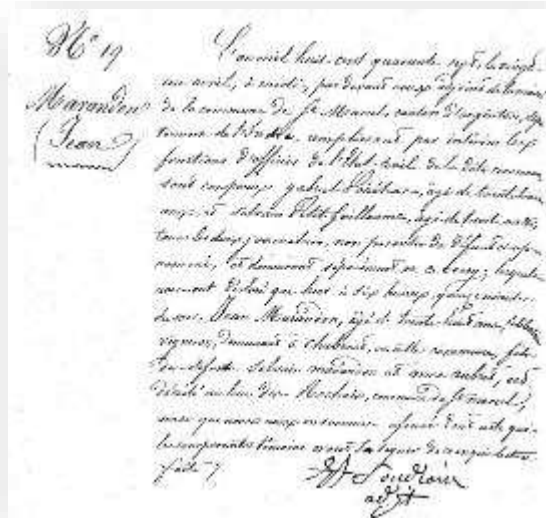 N° 19
Marandon
(Jean)
L'an mil huit cent quarante sept, le vingt
avril, à midi, par devant nous adjoint
de la commune de St Marcel, canton d'argenton,
de l'Indre, remplissant par interim les
fonctions d'officier de l'état civil de la dite commune
sont comparus gabriel agé de trente
ans, et silvain Petit guillaume, agé de trente
tous les deux journaliers, non parents du défunt
et demeurant séparément en ce bourg; lesquels
nous ont déclaré que hier à six heures quinze minutes
du soir, Jean Marandon, agé de trente huit ans,
vigneron, demeurant à en cette commune, fils
de defunts Silvain marandon et anne aubret, est
décédé au lieu des Rochers, commune de St marcel,
ainsi que nous nous en sommes assuré dont acte que
les comparants temoins n'ont su signer de ce enquis lecture
faite
adjt